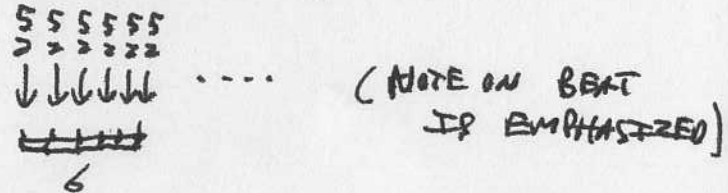 5 5 5 5 5 5
2 2 2 2 2 2
↓ ↓ ↓ ↓ ↓ ↓ .... (NOTE ON BEAT
IS EMPHASIZED)
6